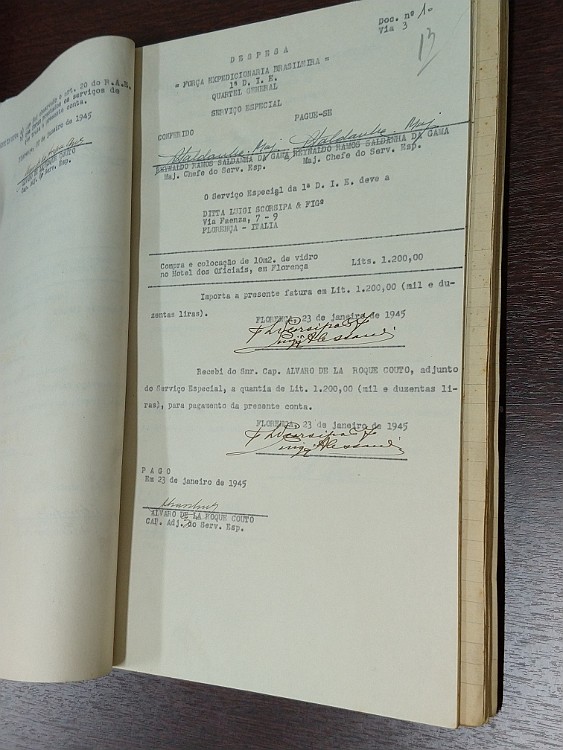 art. 20 do R.A.E.
serviços de
presente conta.
de janeiro de 1945
Serv. Esp.
Doc. nº 1-
Via 3
13
D E S P E S A
= FORÇA EXPEDICIONARIA BRASILEIRA =
1ª D. I. E.
QUARTEL GENERAL
SERVIÇO ESPECIAL
CONFERIDO PAGUE-SE
REYNALDO RAMOS SALDANHA DA GAMA REYNALDO RAMOS SALDANHA DA GAMA
Maj. Chefe do Serv. Esp. Maj. Chefe do Serv. Esp.
O Serviço Especial da 1ª D. I. E. deve a
DITTA LUIGI SCORSIPA & FIGº
Via Faenza, 7 - 9
FLORENÇA - ITALIA
Compra e colocação de 10m2. de vidro
no Hotel dos Oficiais, em Florença Lits. 1.200,00
Importa a presente fatura em Lit. 1.200,00 (mil e du-
zentas liras).
FLORENÇA, 23 de janeiro de 1945
Recebi do Snr. Cap. ALVARO DE LA ROQUE COUTO, adjunto
do Serviço Especial, a quantia de Lit. 1.200,00 (mil e duzentas li-
ras), para pagamento da presente conta.
FLORENÇA, 23 de janeiro de 1945
P A G O
Em 23 de janeiro de 1945
ALVARO DE LA ROQUE COUTO
CAP. Adj. do Serv. Esp.